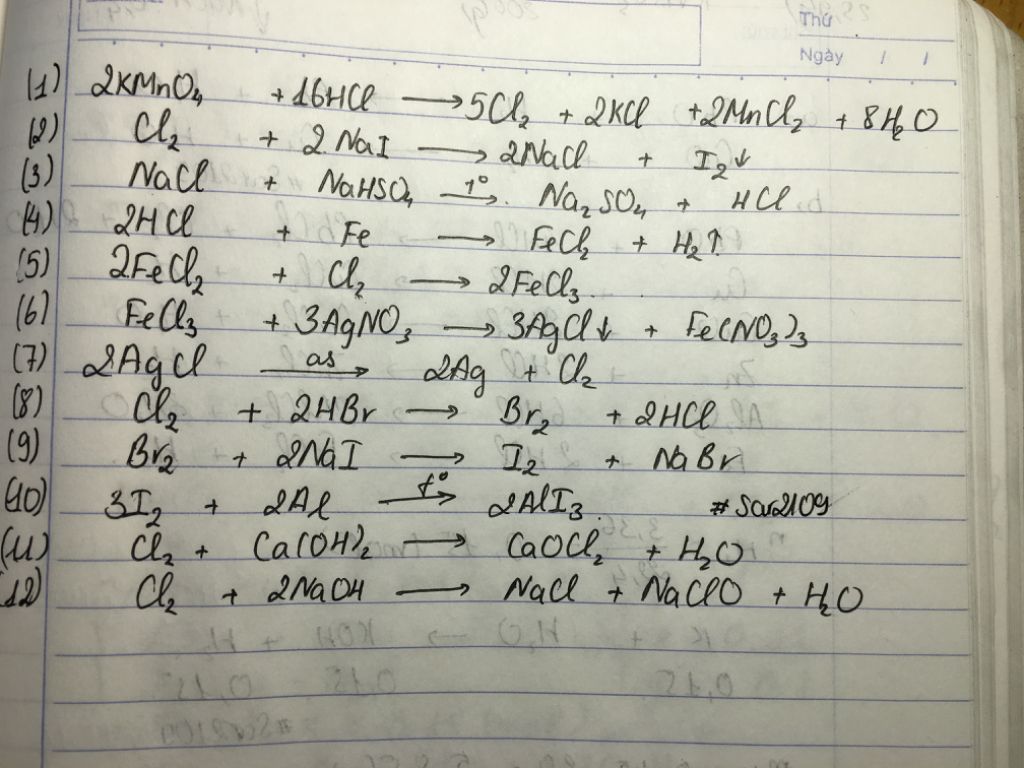 Thứ
Ngày / /
(1) 2KMnO₄ + 16HCl ⟶ 5Cl₂ + 2KCl + 2MnCl₂ + 8H₂O
(2) Cl₂ + 2NaI ⟶ 2NaCl + I₂↓
(3) NaCl + NaHSO₄ —t°→ Na₂SO₄ + HCl
(4) 2HCl + Fe ⟶ FeCl₂ + H₂↑
(5) 2FeCl₂ + Cl₂ ⟶ 2FeCl₃.
(6) FeCl₃ + 3AgNO₃ ⟶ 3AgCl↓ + Fe(NO₃)₃
(7) 2AgCl —as→ 2Ag + Cl₂
(8) Cl₂ + 2HBr ⟶ Br₂ + 2HCl
(9) Br₂ + 2NaI ⟶ I₂ + NaBr
(10) 3I₂ + 2Al —t°→ 2AlI₃. #Sar2109
(11) Cl₂ + Ca(OH)₂ ⟶ CaOCl₂ + H₂O
(12) Cl₂ + 2NaOH ⟶ NaCl + NaClO + H₂O